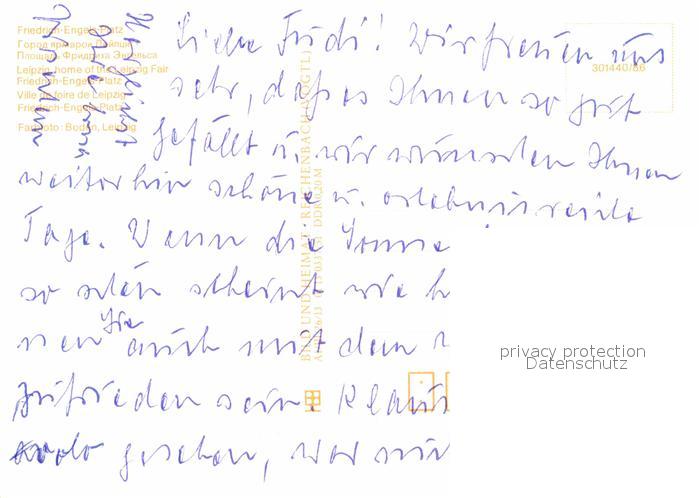 Liebe Trudi! Wir freuen uns
sehr, daß es Ihnen so gut
gefällt u. wir wünschen Ihnen
weiterhin schöne u. erlebnisreiche
Tage. Wenn die Sonne
so schön scheint wie h
nen Sie auch mit dem
zufrieden sein. Klaus
gesehen, war wir
Herzlichst
Friedrich-Engels-Platz
Город ярмарок Лейпциг
Площадь Фридриха Энгельса
Leipzig, home of the Leipzig Fair
Friedrich-Engels-Platz
Ville de foire de Leipzig
Friedrich-Engels-Platz
Farbfoto: Boden, Leipzig
301440/86
BILD UND HEIMAT REICHENBACH (VOGTL)
privacy protection
Datenschutz